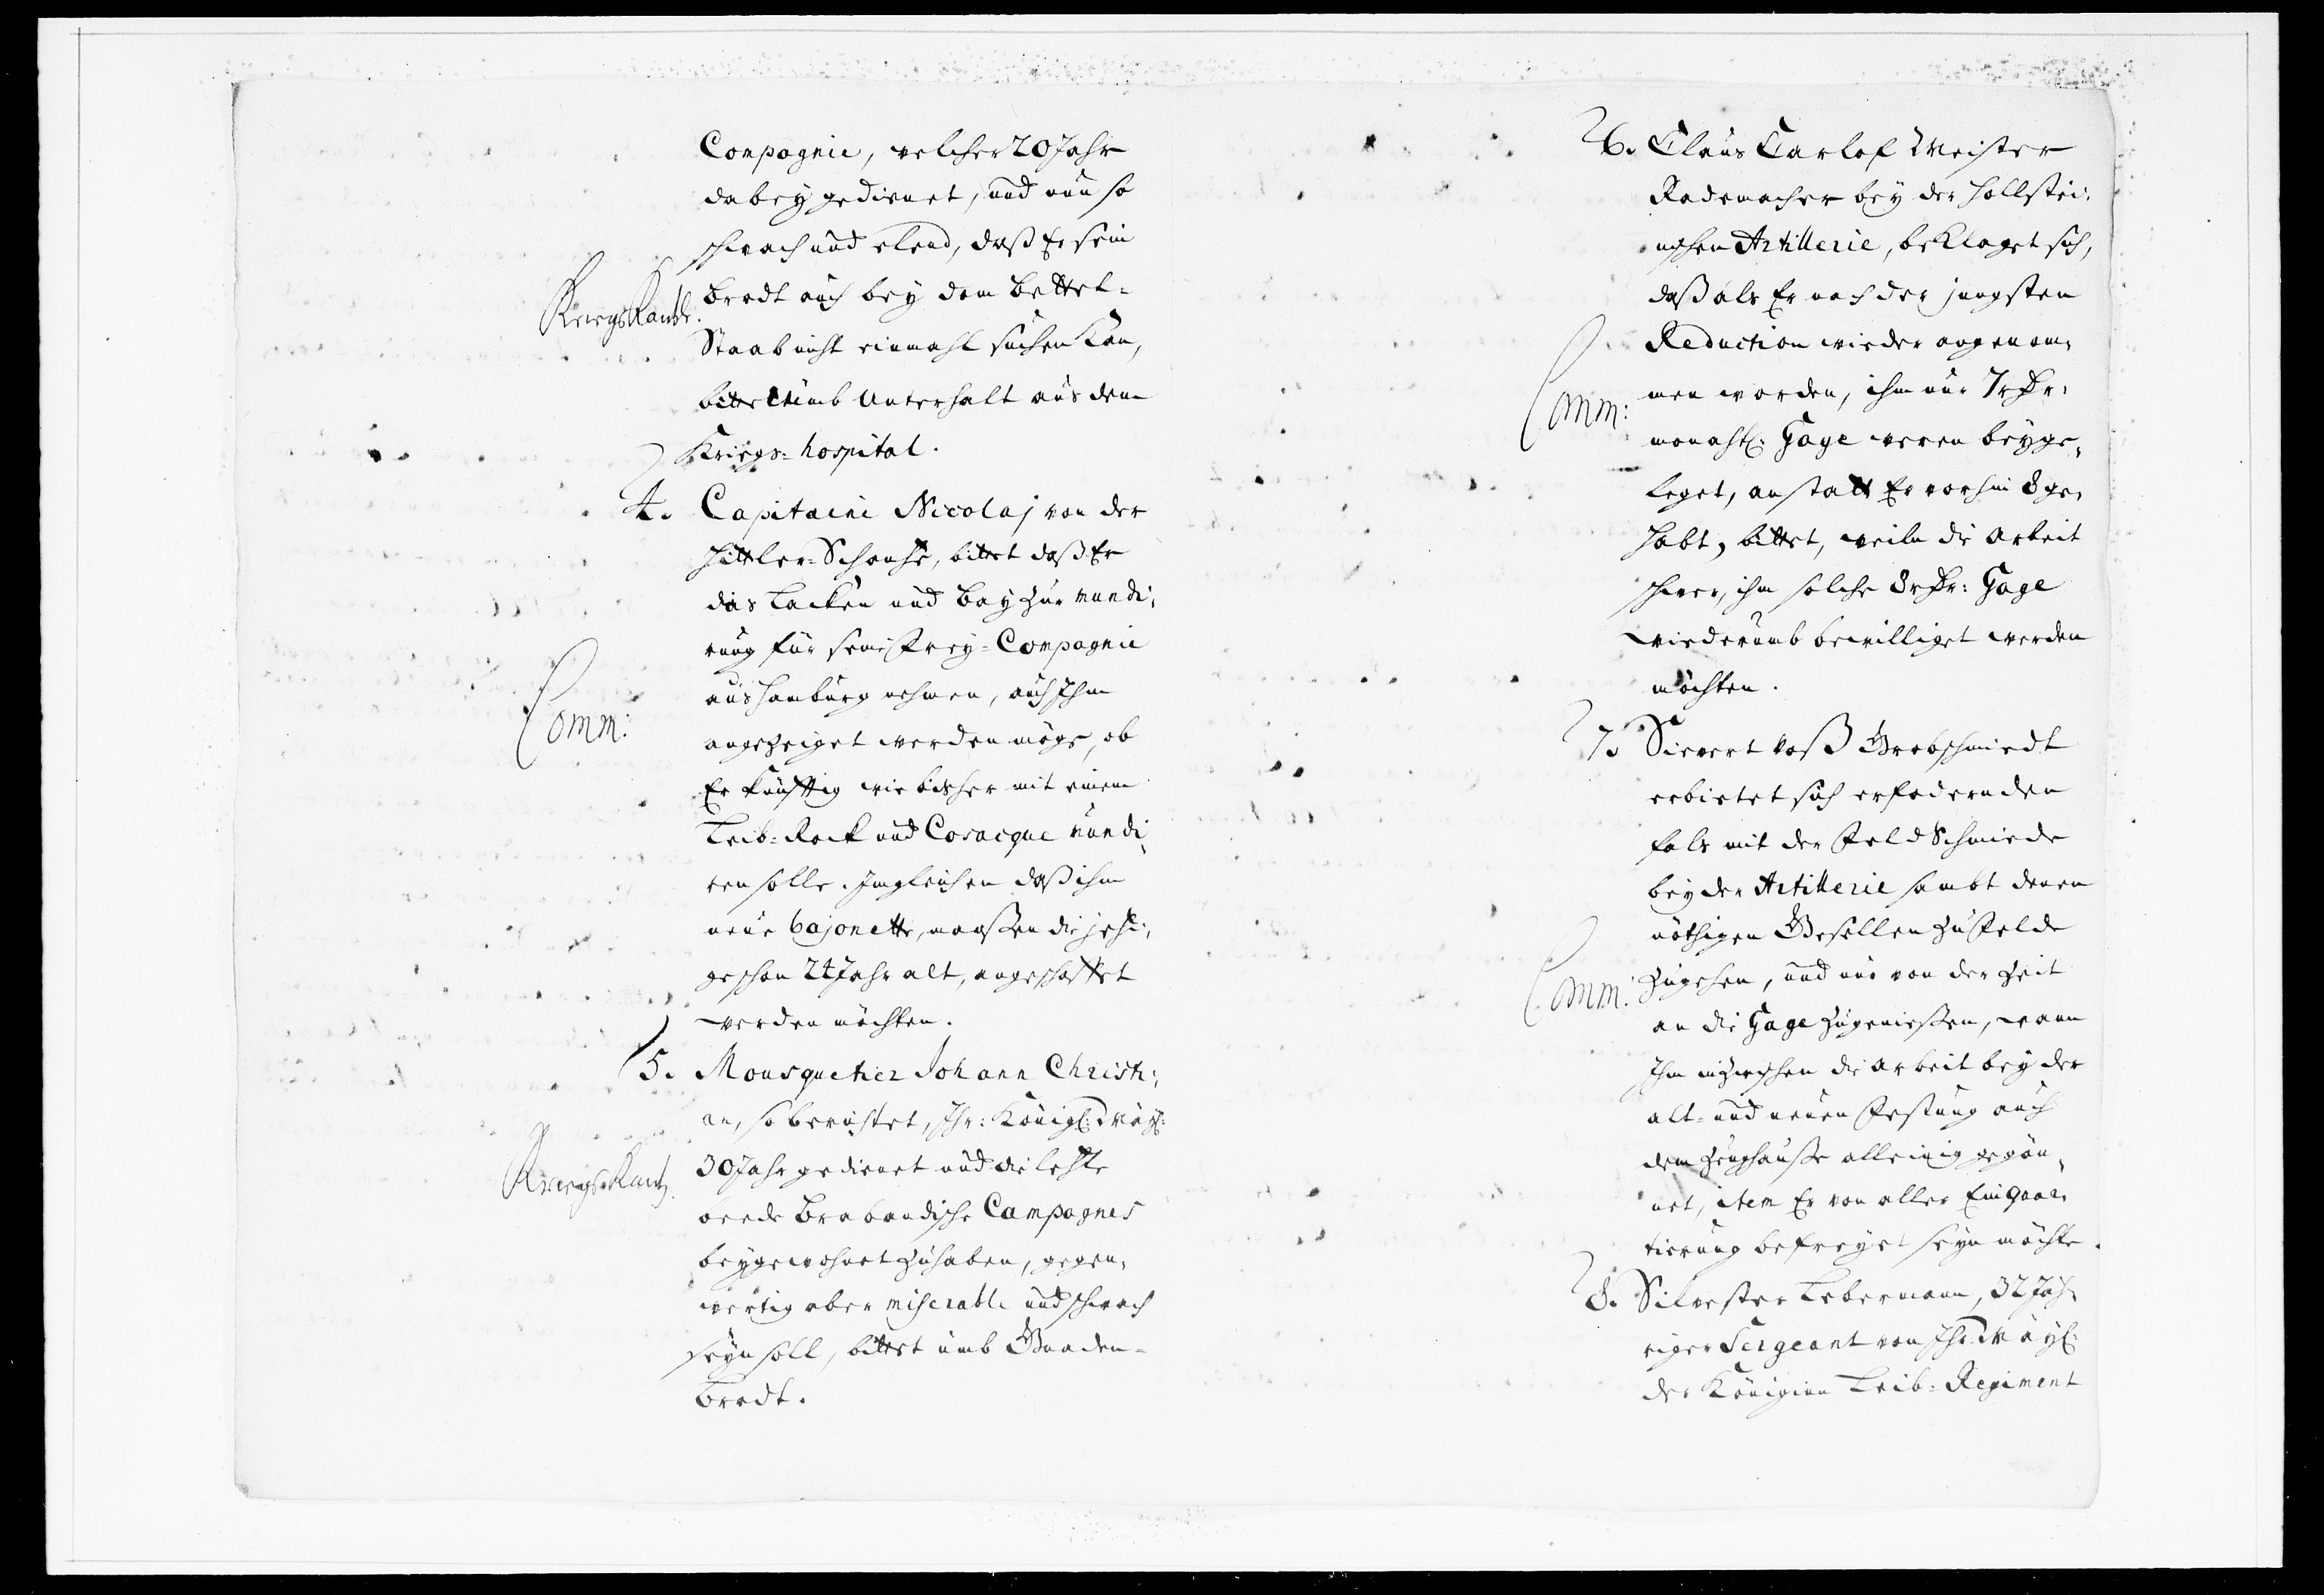 Compagnie, welcher 20 Jahr
dabey gedienet, und nun so
schwach und elend, daß Er sein
Brodt auch bey dem Bettel-
KriegsKantz.
Staab nicht einmahl suchen kan,
bittet umb Unterhalt aus dem
Kriegs-hospital.
4. Capitaine Nicolaj von der
Hittler-Schantze, bittet daß Er
das Lacken und Bay zur mundi-
rung für seine Frey-Compagnie
aus Hamburg nehmen, auch Ihm
Comm:
angezeiget werden möge, ob
Er künfftig wie bisher mit einem
Leib-Rock und Casacque mundi-
ren solle. Ingleichen daß ihm
neue bajonette, maaßen die jetzi-
ge schon 24 Jahr alt, angeschaffet
werden möchten.
5. Mousquetier Johann Christi-
an, so berichtet, Ihr: Königl: May:
KriegsKantz.
30 Jahr gedienet und die letzte
beede Brabandische Campagnes
beygewohnet zu haben, gegen-
wertig aber miserable und schwach
seyn soll, bittet umb Gnaden-
Brodt.
6. Claus Carlof Meister
Rademacher bey der Hollstei-
nschen Artillerie, beklaget sich,
daß als Er nach der jüngsten
Reduction wieder angenom-
men worden, ihm nur 7 rthr:
Comm:
monahtl: Gage weren beyge-
leget, anstatt Er vorhin 8 ge-
habt, bittet, weiln die Arbeit
schwer, ihm solche 8 rthr: Gage
wiederumb bewilliget werden
möchten.
7. Sievert Voß Grobschmiedt
erbietet sich erfodernden
fals mit der Feld Schmiede
bey der Artillerie sambt denen
nöthigen Gesellen zu Felde
Comm:
zugehen, und nur von der Zeit
an die Gage zugeniessen, wann
Ihm inzwischen die Arbeit bey der
alt- und neuen Festung auch
dem Zeughausse alleinig gegön-
net, item Er von aller Einquar-
tierung befreyet seyn möchte.
8. Silvester Lebermann, 32 Jäh-
riger Sergeant von Ihr May:
der Königinn Leib-Regiment